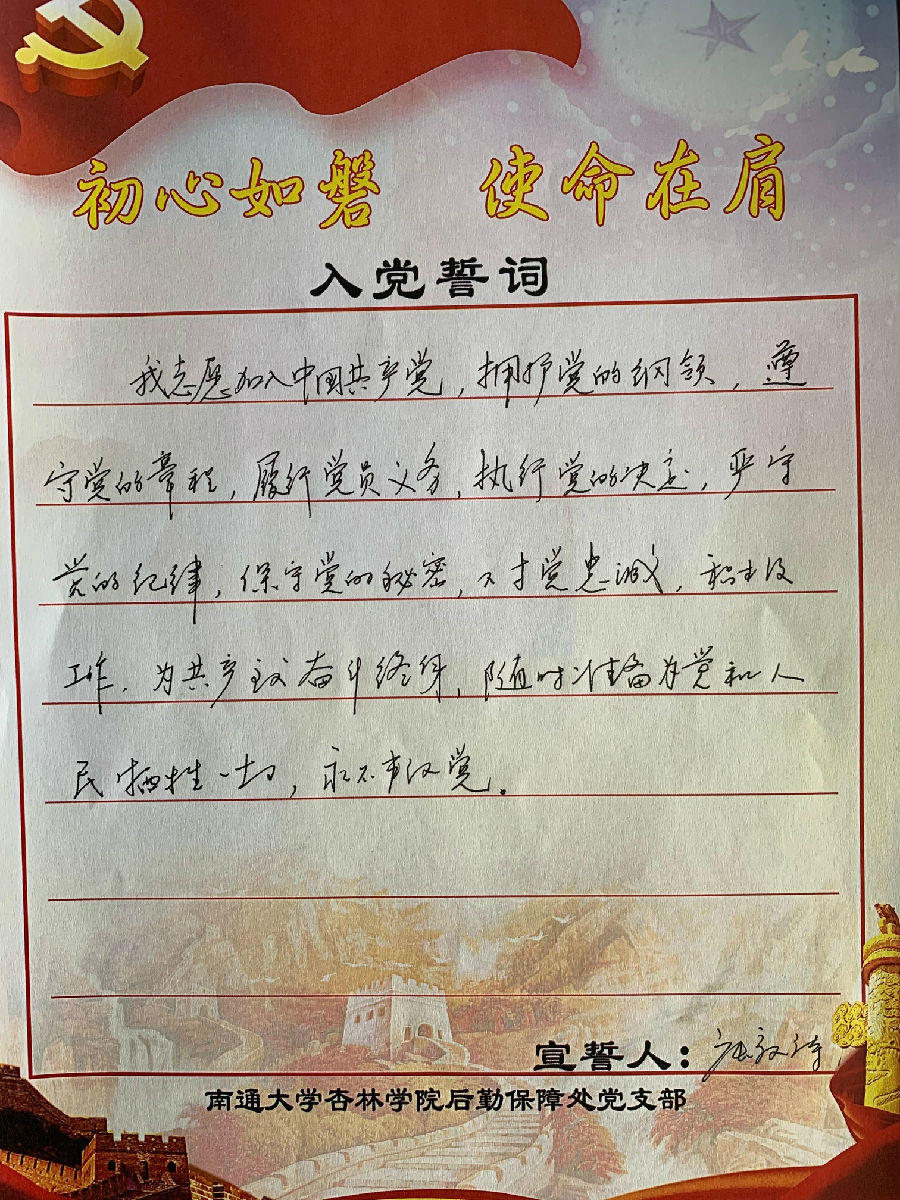 初心如磐 使命在肩
入党誓词
我志愿加入中国共产党，拥护党的纲领，遵
守党的章程，履行党员义务，执行党的决定，严守
党的纪律，保守党的秘密，对党忠诚，积极
工作，为共产主义奋斗终身，随时准备为党和人
民牺牲一切，永不叛党。
宣誓人：
南通大学杏林学院后勤保障处党支部